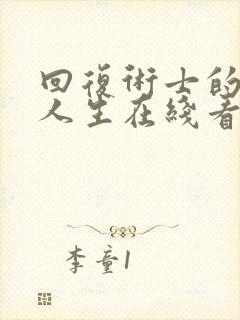 回復術士的
人生在綫看
李童1